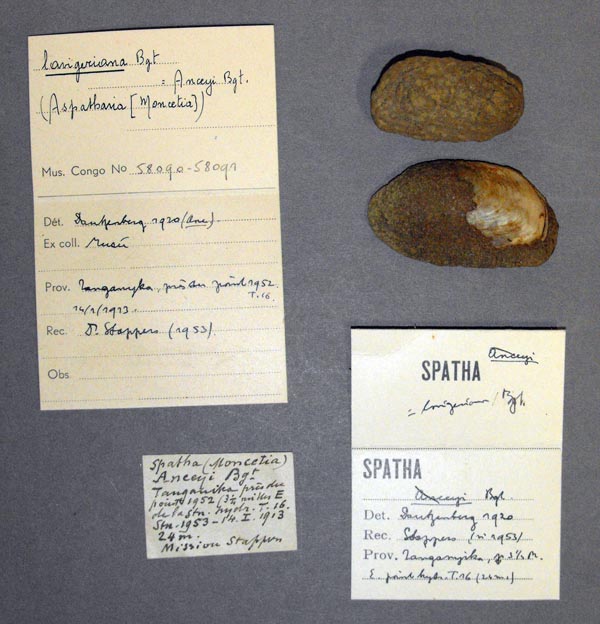 lavigeriana Bgt
= Anceyi Bgt.
(Aspatharia [Moncetia])
Mus. Congo No 58090-58091
Dét. Dautzenberg 1920 (Anc)
Ex coll. Musée
Prov. Tanganyika, près du point 1952
T.16.
14/1/1913
Rec. Dr Stappers (1953)
Obs
Spatha (Moncetia)
Anceyi Bgt
Tanganika près du
point 1952 (3½ milles E
de la stn. hydr. T.16.
Stn. 1953 - 14. I. 1913
24 m.
Mission Stappers
Anceyi
SPATHA
= lavigeriana Bgt.
SPATHA
Anceyi Bgt.
Det. Dautzenberg 1920
Rec. Stappers (n° 1953)
Prov. Tanganyika, 3½ M.
E. point hydr. T.16 (24 m.)